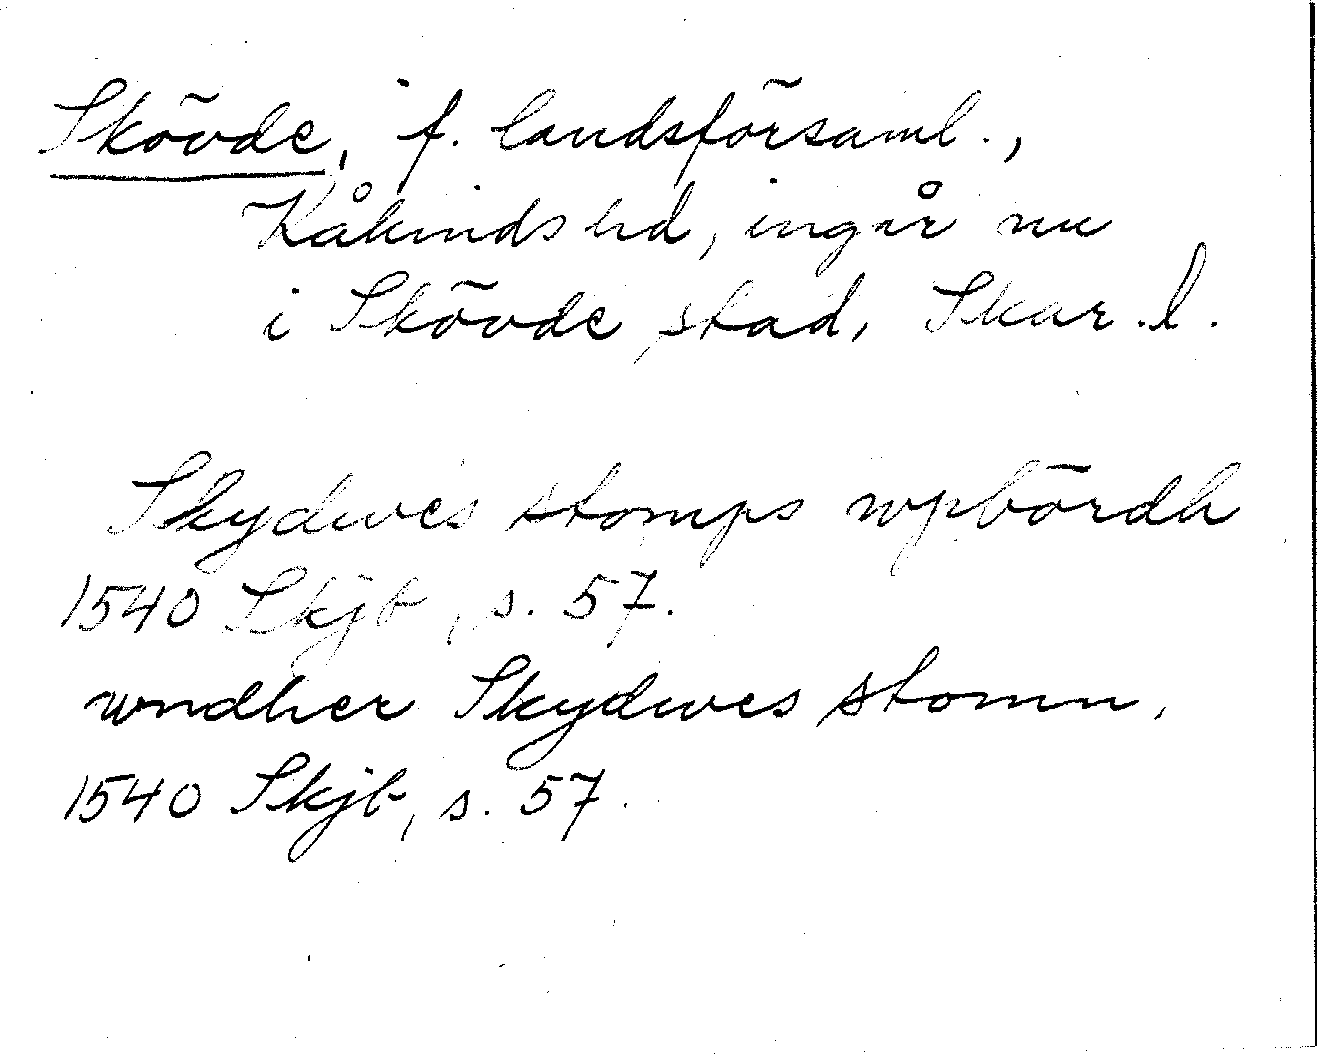 Skövde, f. landsförsaml.,
Kåkinds hd, ingår nu
i Skövde stad, Skar. l.
Skydwes stomps wpbördh
1540 Skjb, s. 57.
wndher Skydwes stomn,
1540 Skjb, s. 57.